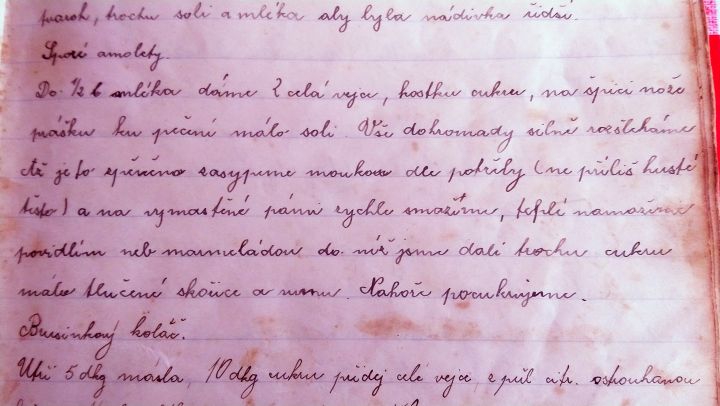 tvaroh, trochu soli a mléka aby byla nádivka řidší.
Sporé amolety.
Do 1/2 l mléka dáme 2 celá vejce, kostku cukru, na špici nože
prášku ku pečení málo soli. Vše dohromady silně rozšleháme
Až je to zpěněno zasypeme moukou dle potřeby (ne příliš husté
těsto) a na vymastěné pánvi rychle smažíme, teplé namažeme
povidlím neb marmeládou do níž jsme dali trochu cukru
málo tlučené skořice a rumu. Nahoře pocukrujeme.
Brusinkový koláč.
Utři 5 dkg masla, 10 dkg cukru přidej celé vejce, z půl citr. ostouhanou